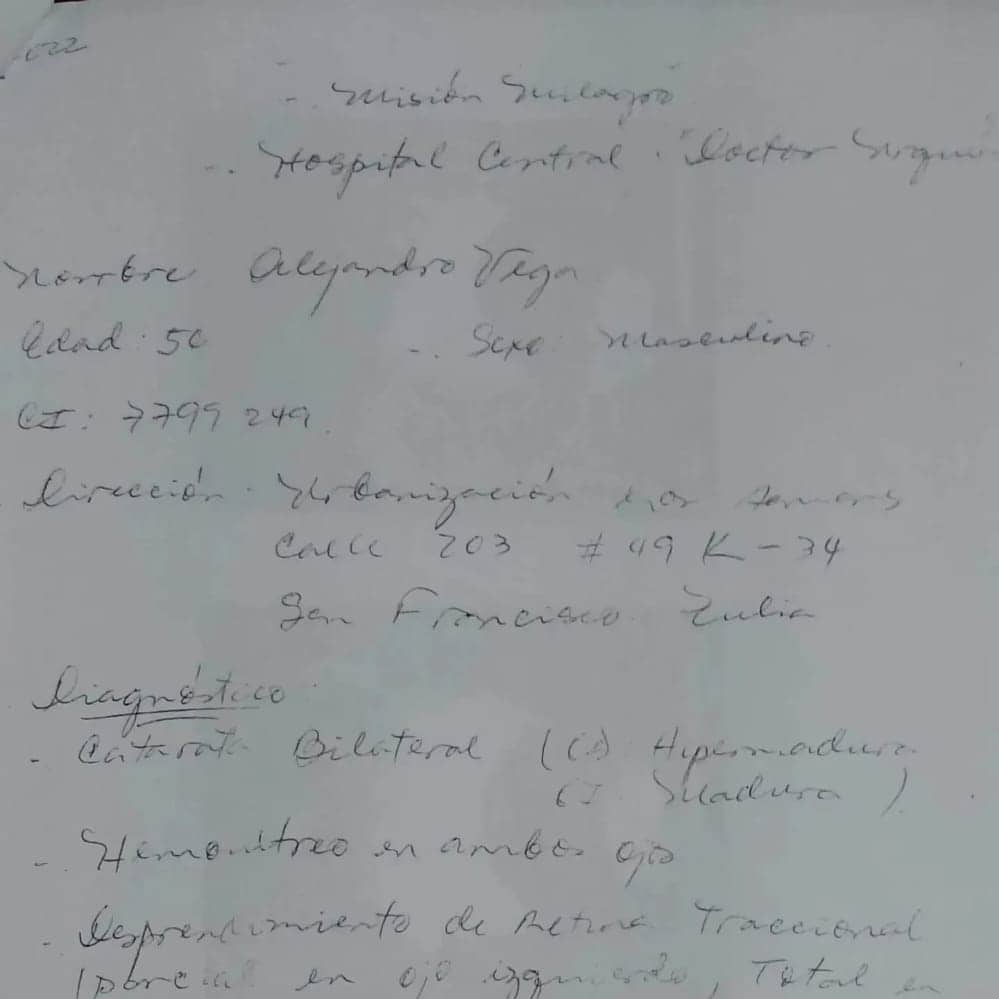 022
- "Misión Milagro"
-. Hospital Central. "Doctor Urqui
Nombre Alejandro Vega
Edad: 50 -. Sexo: Masculino.
CI: 7799 249.
Dirección - Urbanización Los
Calle 203 # 49 K - 34
San Francisco. Zulia
Diagnóstico
- Catarata Bilateral ( Hipermadura
Madura )
- Hemovitreo en ambos ojo
- Desprendimiento de Retina Traccional
(parcial en ojo izquierdo, Total en